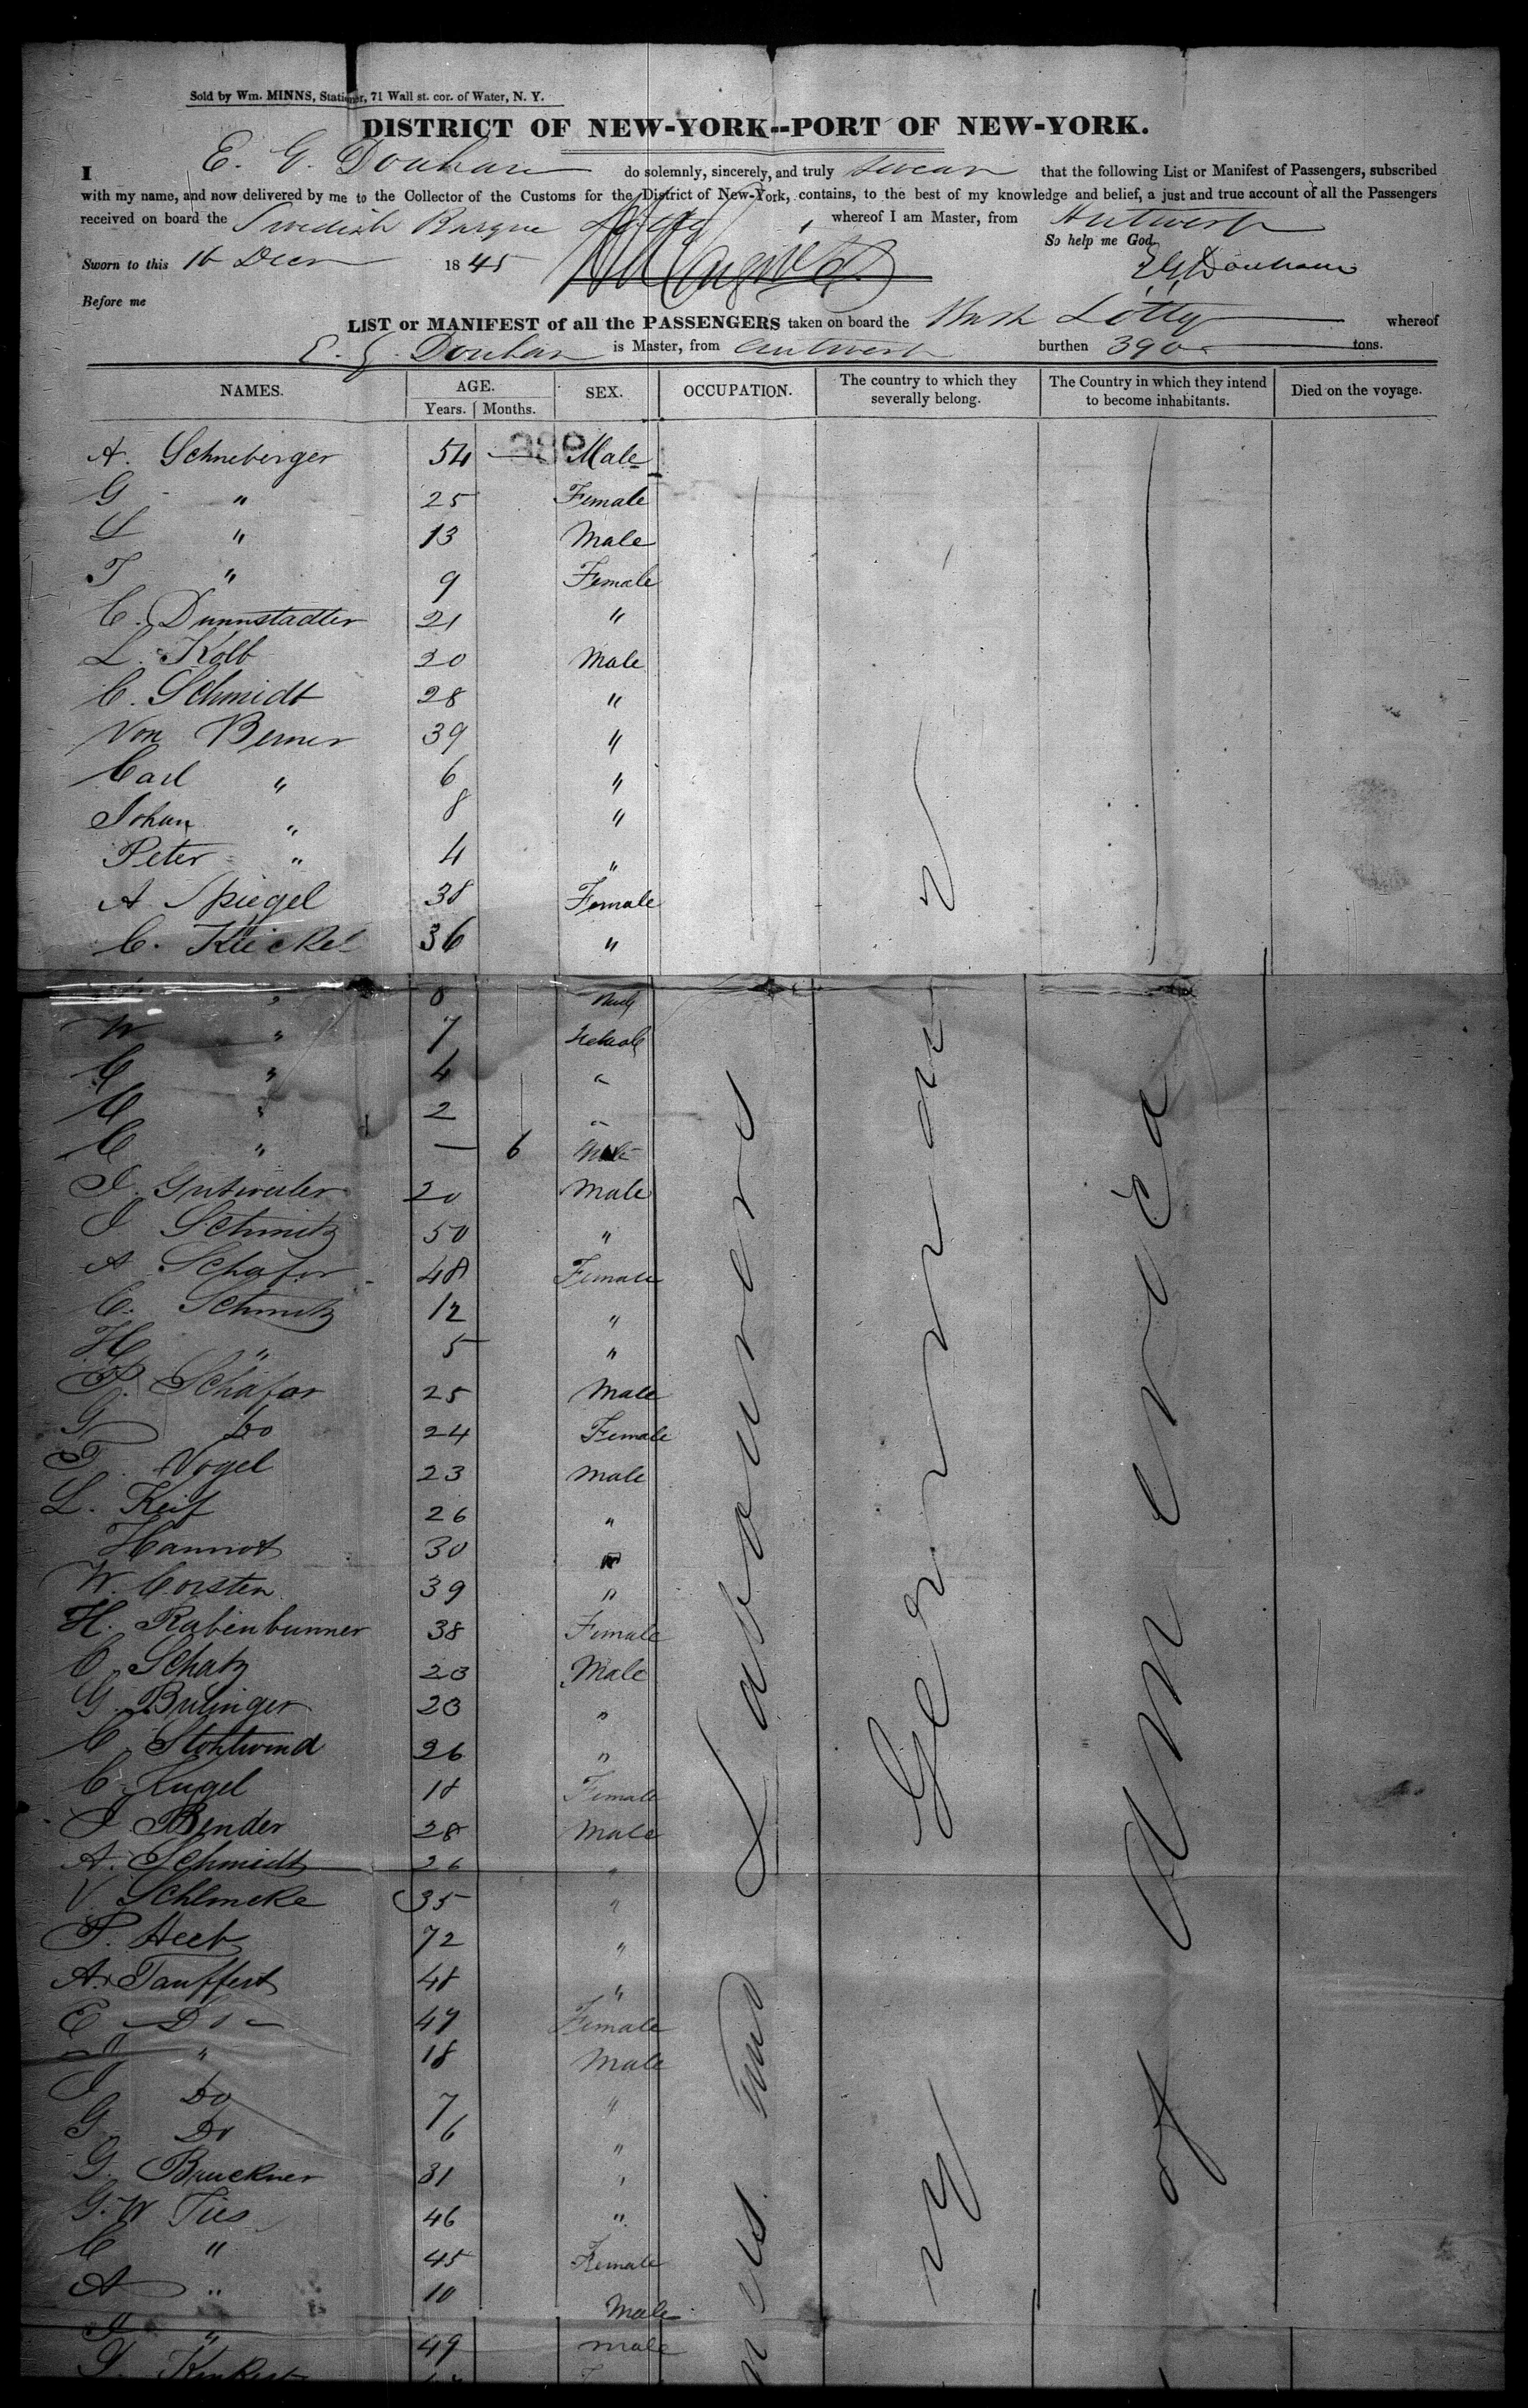 Sold by Wm. MINNS, Stationer, 71 Wall st. cor. of Water, N. Y.
DISTRICT OF NEW-YORK--PORT OF NEW-YORK.
I E. G. Douham do solemnly, sincerely, and truly swear that the following List or Manifest of Passengers, subscribed
with my name, and now delivered by me to the Collector of the Customs for the District of New-York, contains, to the best of my knowledge and belief, a just and true account of all the Passengers
received on board the Swedish Barque Lotty, whereof I am Master, from Antwerp
So help me God.
Sworn to this 16 Decr 1845
Before me
LIST or MANIFEST of all the PASSENGERS taken on board the Lotty whereof
is Master, from Antwerp burthen 390 tons.
NAMES. AGE. SEX. OCCUPATION. The country to which they severally belong. The Country in which they intend to become inhabitants. Died on the voyage.
Years. Months.
A. Schneberger 54 Male
G " 25 Female
L " 13 Male
T " 9 Female
C. Dunnstadter 21 "
L. Kolb 20 Male
C. Schmidt 28 "
Von Berner 39 "
Carl " 6 "
Johan " 8 "
Peter " 4 "
A Spiegel 38 Female
C. Kückel 36 "
" 8
W " 7 Female
C " 4 "
C " 2 "
C " — 6
J. Gutweiler 20 Male
J Schmitz 50 "
A Schafer 48 Female
C. Schmitz 12 "
H " 5 "
P. Schafer 25 Male
G Do 24 Female
T. Vogel 23 Male
L. Keif 26 "
Hannot 30 "
W. Corsten 39 "
H. Rabenbunner 38 Female
C Schatz 23 Male
G. Bulinger 23 "
C Stohtwind 26 "
C Kugel 18 Female
J Bender 28 Male
A. Schmidt 26 "
V Schlmcke 35 "
P. Heeb 72 "
A. Tauffert 48 "
E - Do - 47 Female
" 18 Male
J Do 7 "
G Do 6 "
G. Bruckner 31 "
G. W Ties 46 "
C " 45 Female
A " 10 Male
" 49 male
Labourers
Germany
America